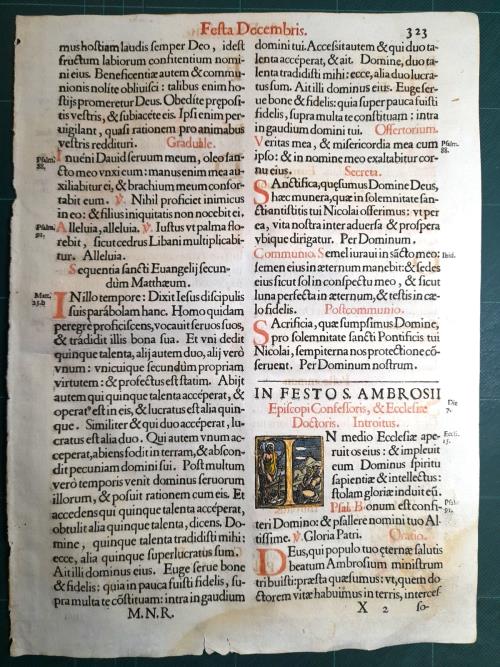 Festa Decembris.
323
mus hostiam laudis semper Deo, idest
fructum labiorum confitentium nomi-
ni eius. Beneficentiæ autem & commu-
nionis nolite obliuisci : talibus enim ho-
stijs promeretur Deus. Obedite præposi-
tis vestris, & subiacete eis. Ipsi enim per-
uigilant, quasi rationem pro animabus
vestris reddituri. Graduale.
Psalm. 88.
Inueni Dauid seruum meum, oleo san-
cto meo vnxi eum: manus enim mea au-
xiliabitur ei, & brachium meum confor-
tabit eum. ℣. Nihil proficiet inimicus
in eo: & filius iniquitatis non nocebit ei.
Psalm. 91.
Alleluia, alleluia. ℣. Iustus vt palma flo-
rebit, sicut cedrus Libani multiplicabi-
tur. Alleluia.
Sequentia sancti Euangelij secun-
dùm Matthæum.
Mat. 25.b
IN illo tempore: Dixit Iesus discipulis
suis parabolam hanc. Homo quidam
peregrè proficiscens, vocauit seruos suos,
& tradidit illis bona sua. Et vni dedit
quinque talenta, alij autem duo, alij verò
vnum: vnicuique secundùm propriam
virtutem: & profectus est statim. Abijt
autem qui quinque talenta accéperat, &
operat⁹ est in eis, & lucratus est alia quin-
que. Similiter & qui duo accéperat, lu-
cratus est alia duo. Qui autem vnum ac-
ceperat, abiens fodit in terram, & abscon-
dit pecuniam domini sui. Post multum
verò temporis venit dominus seruorum
illorum, & posuit rationem cum eis. Et
accedens qui quinque talenta accéperat,
obtulit alia quinque talenta, dicens. Do-
mine, quinque talenta tradidisti mihi:
ecce, alia quinque superlucratus sum.
Ait illi dominus eius. Euge serue bone
& fidelis: quia in pauca fuisti fidelis, su-
pra multa te cōstituam: intra in gaudium
M.N.R.
domini tui. Accesit autem & qui duo ta-
lenta accéperat, & ait. Domine, duo ta-
lenta tradidisti mihi: ecce, alia duo lucra-
tus sum. Ait illi dominus eius. Euge ser-
ue bone & fidelis: quia super pauca fuisti
fidelis, supra multa te constituam : intra
in gaudium domini tui. Offertorium.
Veritas mea, & misericordia mea cum
Psalm. 88.
ipso: & in nomine meo exaltabitur cor-
nu eius. Secreta.
SAnctifica, quęsumus Domine Deus,
hæc munera, quæ in solemnitate san-
cti antistitis tui Nicolai offerimus: vt per
ea, vita nostra inter aduersa & prospera
vbique dirigatur. Per Dominum.
Communio. Semel iuraui in sācto meo:
Ibid.
semen eius in æternum manebit: & sedes
eius sicut sol in conspectu meo, & sicut
luna perfecta in æternum, & testis in cæ-
lo fidelis. Postcommunio.
SAcrificia, quæ sumpsimus Domine,
pro solemnitate sancti Pontificis tui
Nicolai, sempiterna nos protectione cō-
seruent. Per Dominum nostrum.
IN FESTO S. AMBROSII
Die 7.
Episcopi Confessoris, & Ecclesiæ
Doctoris. Introitus.
IN medio Ecclesiæ ape-
Eccli. 15.
ruit os eius: & impleuit
eum Dominus spiritu
sapientiæ & intellectus:
stolam gloriæ induit eū.
Psal. Bonum est confi-
Psal. 91.
teri Domino: & psallere nomini tuo Al-
tissime. ℣. Gloria Patri. Oratio.
DEus, qui populo tuo ęternæ salutis
beatum Ambrosium ministrum
tribuisti: præsta quæsumus: vt, quem do-
ctorem vitæ habuimus in terris, interces-
X 2 so-